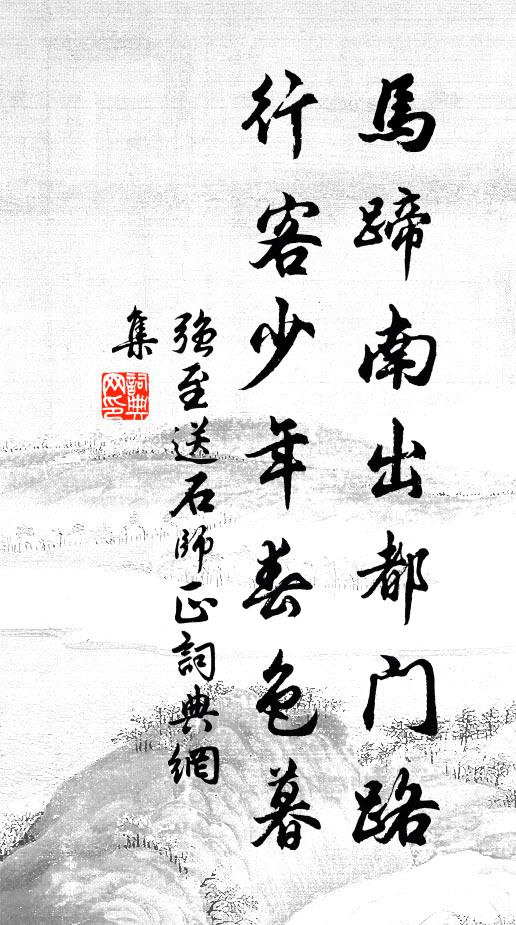 馬蹄南出都门路
行客少年春色暮
強至送石師正詞典網
集
詞典
网印